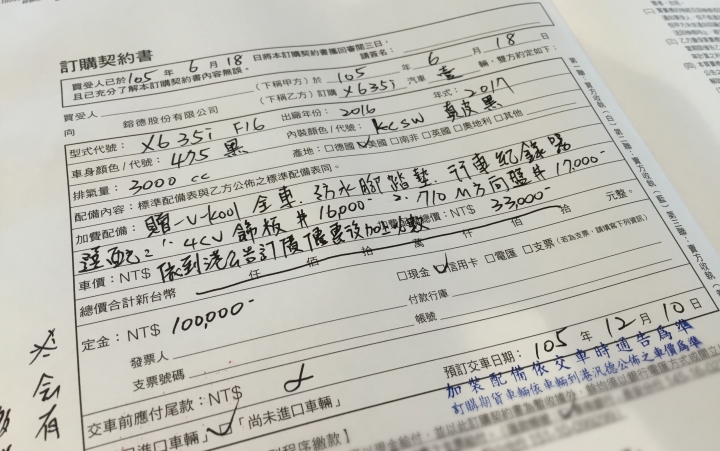 訂購契約書
買受人已於105年6月18日將本訂購契約書攜回審閱三日，
且已充分了解本訂購契約書內容無誤。 請簽名：
買受人 （下稱甲方）於105年6月18日
向 鎔德股份有限公司 （下稱乙方）訂購 X635i 汽車 壹 輛，雙方約定如下：
型式代號： X6 35i F16 出廠年份： 2016 年式： 2017
車身顏色/代號： 475 黑 內裝顏色/代號： KCSW 真皮黑
排氣量： 3000 cc 產地：□德國 ☑美國 □南非 □英國 □奧地利 □其他
配備內容：標準配備表與乙方公佈之標準配備表同。
加費配備： 贈-V-kool 全車．防水腳踏墊．行車紀錄器
選配：1. 4CV 飾板 #16,000- 2. 710 M方向盤 #17,000-
總價：NT$ 33,000- 元整。
車價：NT$ 依到港公告訂價優惠後加上
總價合計新台幣 仟 佰 拾 萬 仟 佰 拾
定金：NT$ 100,000- □現金 ☑信用卡 □電匯 □支票（若為支票，請填寫下列資訊）
發票人 付款行庫
支票號碼 帳號
交車前應付尾款：NT$ 預訂交車日期：105年12月10日
加裝配備依交車時通告為準
訂購期貨車輛依車輛到港汎德公佈之車價為準
進口車輛」 □「尚未進口車輛」
第一聯：賣方收執(白) 第二聯：賣方收執(藍) 第三聯：賣方收執
会有